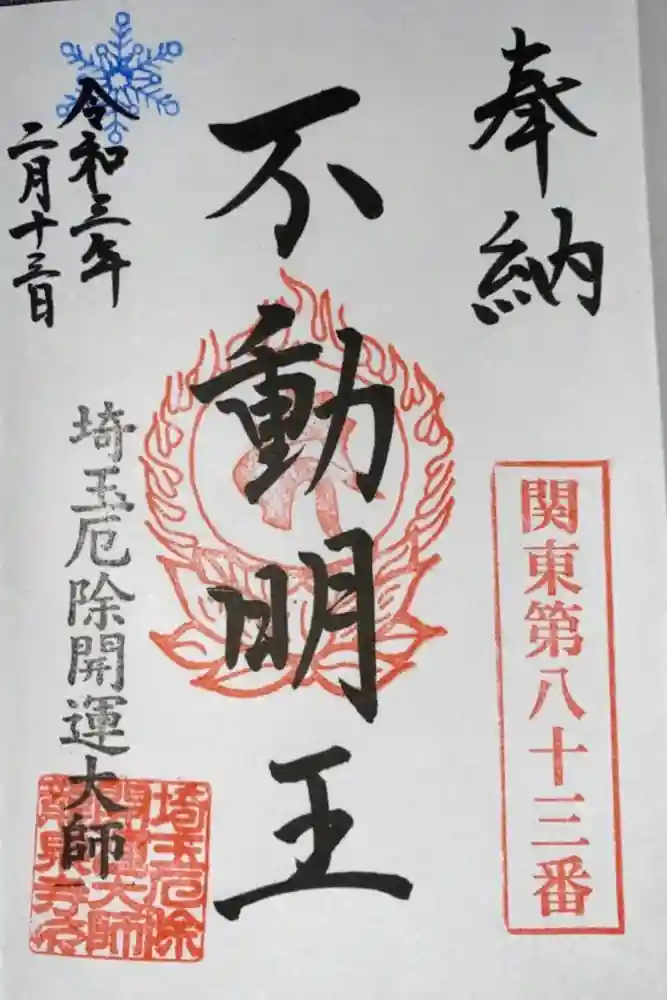 奉納
関東第八十三番
不動明王
令和三年
二月十三日
埼玉厄除開運大師
埼玉厄除
開運大師
龍泉寺